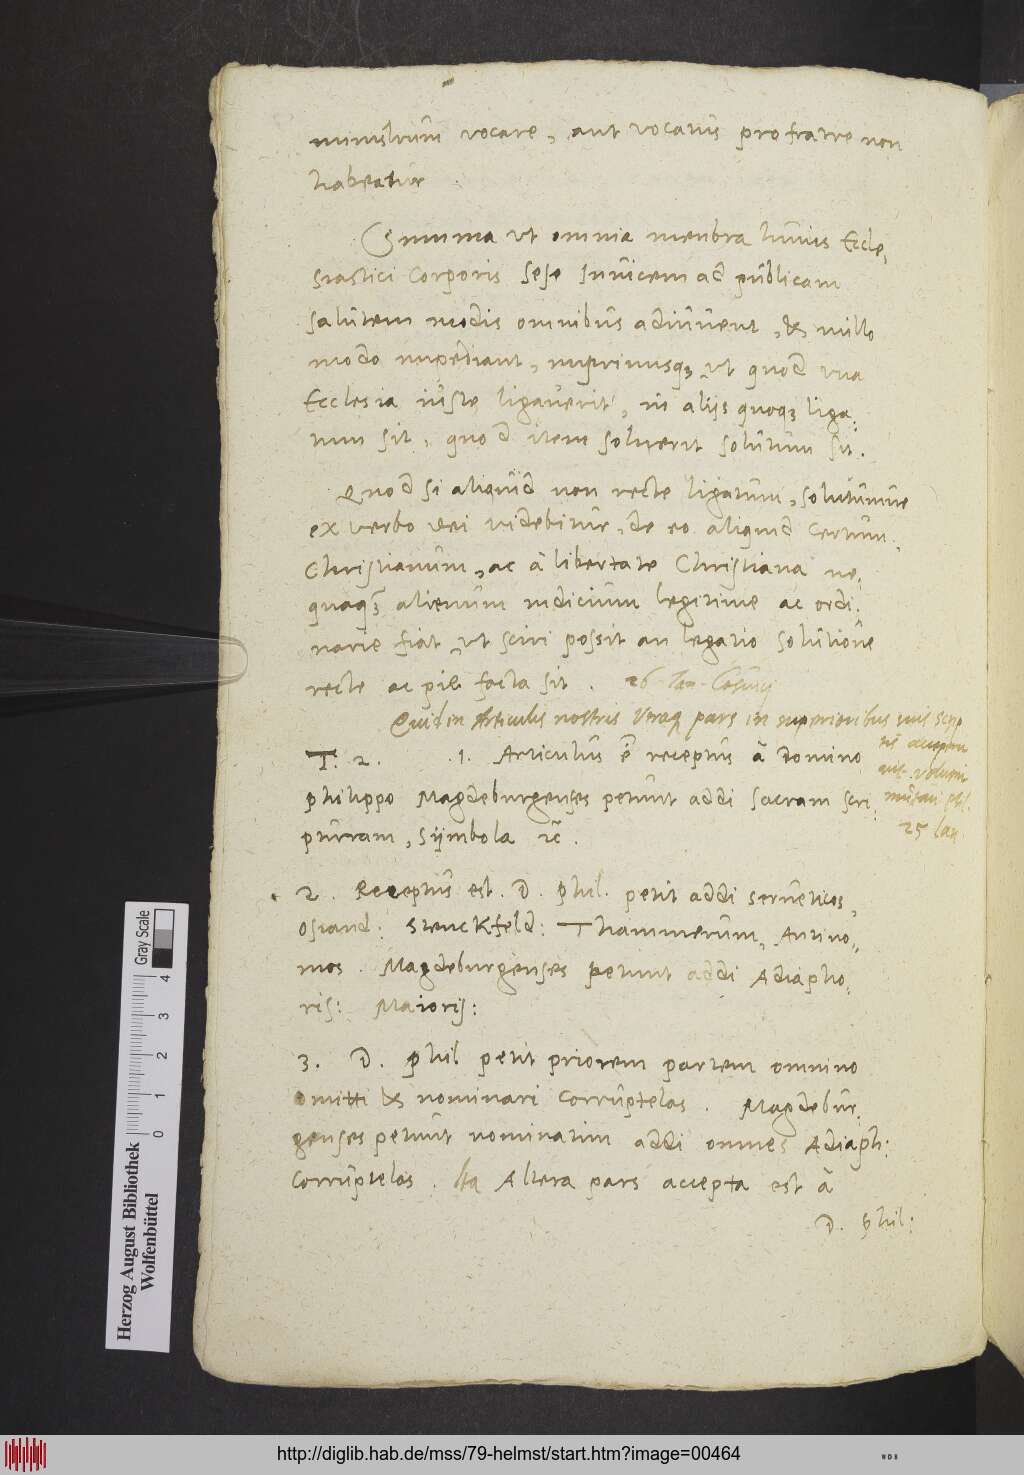 ministrum vocare, aut vocatus pro fratre non
habeatur
Summa ut omnia membra huius Eccle„
siastici Corporis sese Invicem ad publicam
salutem modis omnibus adiuvent, & nullo
modo impediant, inprimisq₃ ut quod una
Ecclesia iuste ligaverit, in alijs quoq₃ liga:
tum sit, quod item solverit solutum sit.
Quod si aliquid non recte ligatum, solutumve
ex verbo dei videbitur, de eo aliquid certum„
Christianum, ac â libertate Christiana ne„
quaq̃₃ alienum iudicium legitime ac ordi:
narie fiat, ut sciri possit an legatio solutiove
recte ac pie facta sit. 26 Jan. Cosuuij
Quid in Articulis nostris Utraq₃ pars in superioribus suis scrip
tis
volum
mutari phil.
25 Jan.
T: 2. .1. Articulus ẽ receptus â Domino
Philippo Magdeburgenses petunt addi sacram scri:
pturam, Symbola ꝛc̃.
2. Receptus est. D. Phil. petit addi serueticos„
Osiand: Stenckfeld: Thammerum, Antino„
mos. Magdeburgenses petunt addi Adiapho„
ris: Maioris:
3. D. Phil petit priorem partem omnino
omitti & nominari Corruptelas. Magdebur:
genses petunt nominatim addi omnes Adiaph:
Corruptelas. Altera pars accepta est â
D. Phil:
Herzog August Bibliothek
Wolfenbüttel
Gray Scale
0 1 2 3 4
http://diglib.hab.de/mss/79-helmst/start.htm?image=00464
WDB